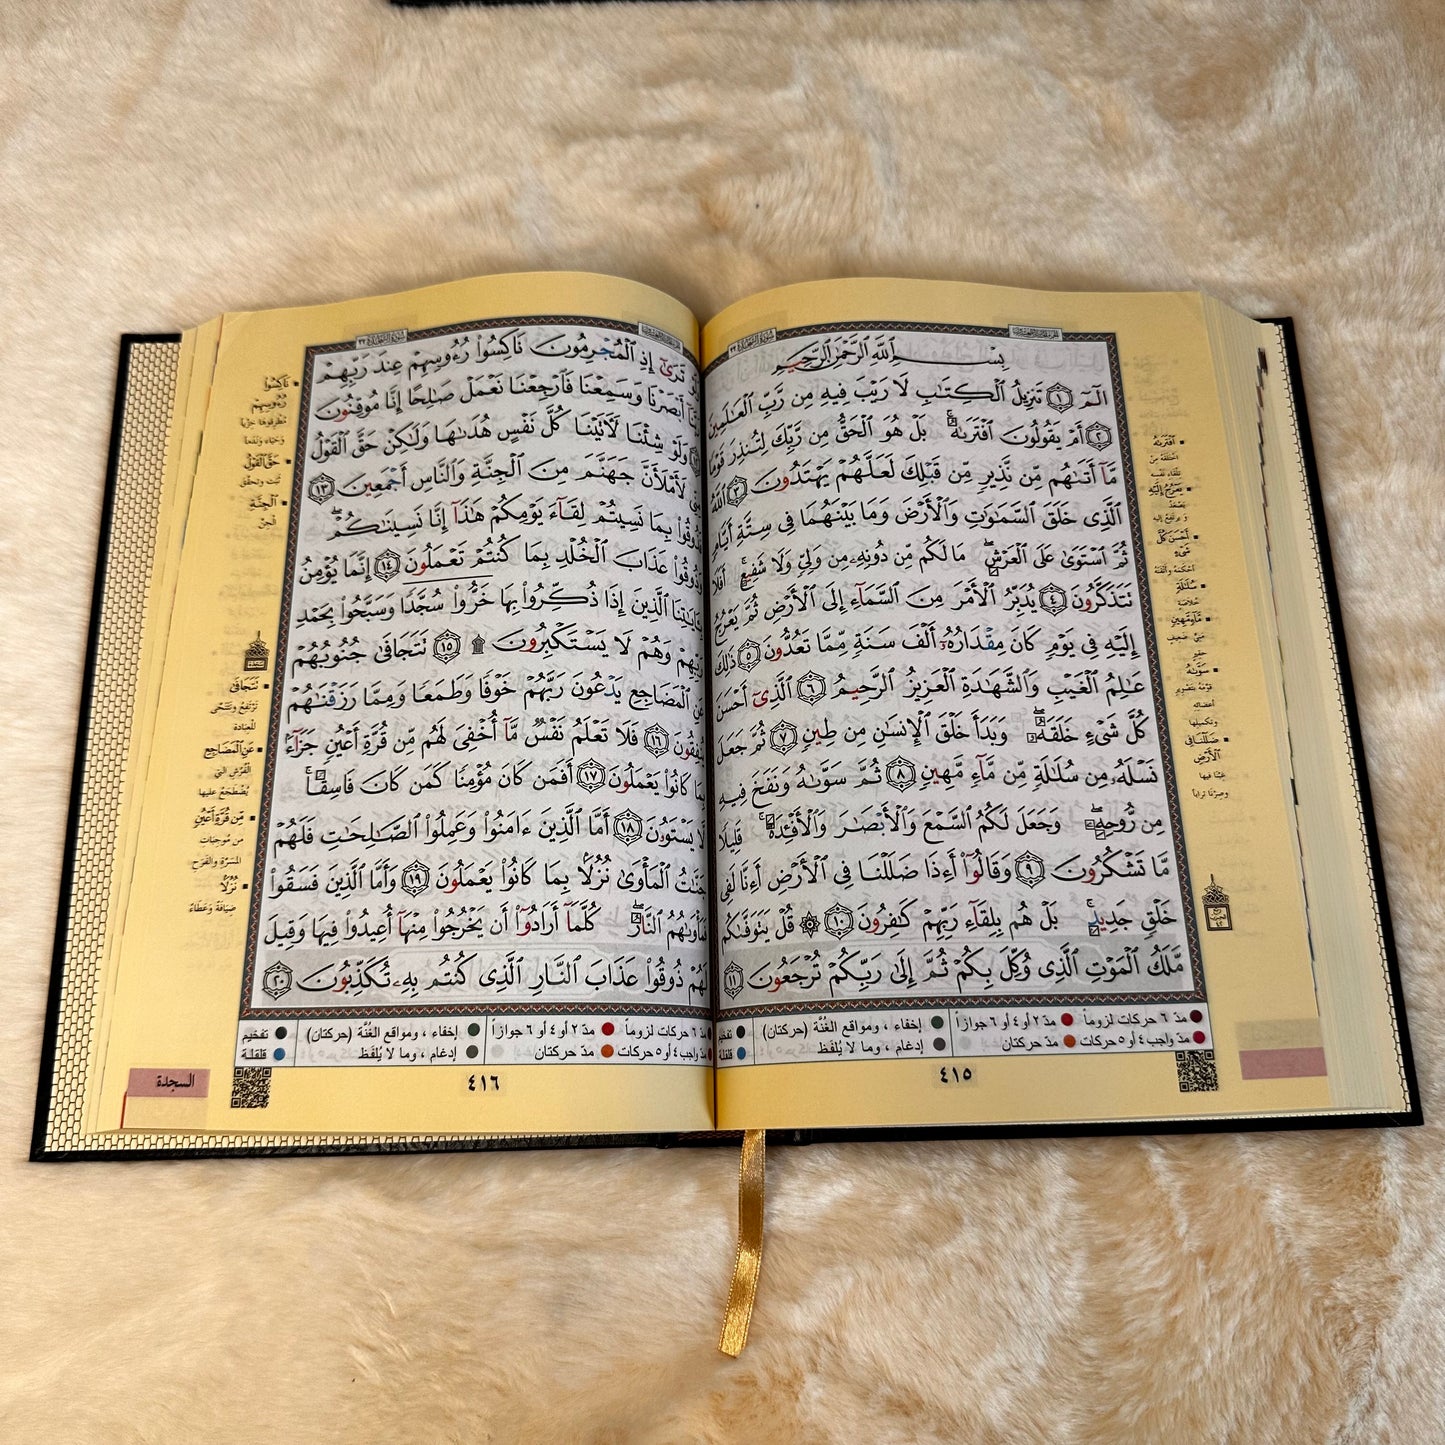 بِسْمِ ٱللَّهِ ٱلرَّحْمَٰنِ ٱلرَّحِيمِ
الٓمٓ ١ تَنزِيلُ ٱلْكِتَٰبِ لَا رَيْبَ فِيهِ مِن رَّبِّ ٱلْعَٰلَمِينَ
٢ أَمْ يَقُولُونَ ٱفْتَرَىٰهُ ۚ بَلْ هُوَ ٱلْحَقُّ مِن رَّبِّكَ لِتُنذِرَ قَوْمًا
مَّآ أَتَىٰهُم مِّن نَّذِيرٍ مِّن قَبْلِكَ لَعَلَّهُمْ يَهْتَدُونَ ٣ ٱللَّهُ
ٱلَّذِى خَلَقَ ٱلسَّمَٰوَٰتِ وَٱلْأَرْضَ وَمَا بَيْنَهُمَا فِى سِتَّةِ أَيَّامٍ
ثُمَّ ٱسْتَوَىٰ عَلَى ٱلْعَرْشِ ۖ مَا لَكُم مِّن دُونِهِۦ مِن وَلِىٍّ وَلَا شَفِيعٍ ۚ أَفَلَا
تَتَذَكَّرُونَ ٤ يُدَبِّرُ ٱلْأَمْرَ مِنَ ٱلسَّمَآءِ إِلَى ٱلْأَرْضِ ثُمَّ يَعْرُجُ
إِلَيْهِ فِى يَوْمٍ كَانَ مِقْدَارُهُۥٓ أَلْفَ سَنَةٍ مِّمَّا تَعُدُّونَ ٥ ذَٰلِكَ
عَٰلِمُ ٱلْغَيْبِ وَٱلشَّهَٰدَةِ ٱلْعَزِيزُ ٱلرَّحِيمُ ٦ ٱلَّذِىٓ أَحْسَنَ
كُلَّ شَىْءٍ خَلَقَهُۥ ۖ وَبَدَأَ خَلْقَ ٱلْإِنسَٰنِ مِن طِينٍ ٧ ثُمَّ جَعَلَ
نَسْلَهُۥ مِن سُلَٰلَةٍ مِّن مَّآءٍ مَّهِينٍ ٨ ثُمَّ سَوَّىٰهُ وَنَفَخَ فِيهِ
مِن رُّوحِهِۦ ۖ وَجَعَلَ لَكُمُ ٱلسَّمْعَ وَٱلْأَبْصَٰرَ وَٱلْأَفْـِٔدَةَ ۚ قَلِيلًا
مَّا تَشْكُرُونَ ٩ وَقَالُوٓا۟ أَءِذَا ضَلَلْنَا فِى ٱلْأَرْضِ أَءِنَّا لَفِى
خَلْقٍ جَدِيدٍۭ ۚ بَلْ هُم بِلِقَآءِ رَبِّهِمْ كَٰفِرُونَ ١٠ ۞ قُلْ يَتَوَفَّىٰكُم
مَّلَكُ ٱلْمَوْتِ ٱلَّذِى وُكِّلَ بِكُمْ ثُمَّ إِلَىٰ رَبِّكُمْ تُرْجَعُونَ ١١
افْتَرَاهُ
يَعْرُجُ إِلَيْهِ
أَحْسَنَ كُلَّ شَيْءٍ
سُلَالَةٍ
خلاصة
مَّاءٍ مَّهِينٍ
مَنِيٍّ ضعيف حقير
سَوَّاهُ
ضَلَلْنَا فِي الْأَرْضِ
مدّ ٦ حركات لزوماً مدّ ٢ أو ٤ أو ٦ جوازاً إخفاء ، ومواقع الغُنَّة (حركتان) تفخيم
مدّ واجب ٤ أو ٥ حركات مدّ حركتان إدغام ، وما لا يُلفَظ قلقلة
٤١٥
وَلَوْ تَرَىٰٓ إِذِ ٱلْمُجْرِمُونَ نَاكِسُوا۟ رُءُوسِهِمْ عِندَ رَبِّهِمْ
رَبَّنَآ أَبْصَرْنَا وَسَمِعْنَا فَٱرْجِعْنَا نَعْمَلْ صَٰلِحًا إِنَّا مُوقِنُونَ
١٢ وَلَوْ شِئْنَا لَءَاتَيْنَا كُلَّ نَفْسٍ هُدَىٰهَا وَلَٰكِنْ حَقَّ ٱلْقَوْلُ
مِنِّى لَأَمْلَأَنَّ جَهَنَّمَ مِنَ ٱلْجِنَّةِ وَٱلنَّاسِ أَجْمَعِينَ ١٣
فَذُوقُوا۟ بِمَا نَسِيتُمْ لِقَآءَ يَوْمِكُمْ هَٰذَآ إِنَّا نَسِينَٰكُمْ ۖ
وَذُوقُوا۟ عَذَابَ ٱلْخُلْدِ بِمَا كُنتُمْ تَعْمَلُونَ ١٤ إِنَّمَا يُؤْمِنُ
بِـَٔايَٰتِنَا ٱلَّذِينَ إِذَا ذُكِّرُوا۟ بِهَا خَرُّوا۟ سُجَّدًا وَسَبَّحُوا۟ بِحَمْدِ
رَبِّهِمْ وَهُمْ لَا يَسْتَكْبِرُونَ ۩ ١٥ تَتَجَافَىٰ جُنُوبُهُمْ
عَنِ ٱلْمَضَاجِعِ يَدْعُونَ رَبَّهُمْ خَوْفًا وَطَمَعًا وَمِمَّا رَزَقْنَٰهُمْ
يُنفِقُونَ ١٦ فَلَا تَعْلَمُ نَفْسٌ مَّآ أُخْفِىَ لَهُم مِّن قُرَّةِ أَعْيُنٍ جَزَآءًۢ
بِمَا كَانُوا۟ يَعْمَلُونَ ١٧ أَفَمَن كَانَ مُؤْمِنًا كَمَن كَانَ فَاسِقًا ۚ
لَّا يَسْتَوُۥنَ ١٨ أَمَّا ٱلَّذِينَ ءَامَنُوا۟ وَعَمِلُوا۟ ٱلصَّٰلِحَٰتِ فَلَهُمْ
جَنَّٰتُ ٱلْمَأْوَىٰ نُزُلًۢا بِمَا كَانُوا۟ يَعْمَلُونَ ١٩ وَأَمَّا ٱلَّذِينَ فَسَقُوا۟
فَمَأْوَىٰهُمُ ٱلنَّارُ ۖ كُلَّمَآ أَرَادُوٓا۟ أَن يَخْرُجُوا۟ مِنْهَآ أُعِيدُوا۟ فِيهَا وَقِيلَ
لَهُمْ ذُوقُوا۟ عَذَابَ ٱلنَّارِ ٱلَّذِى كُنتُم بِهِۦ تُكَذِّبُونَ ٢٠
نَاكِسُوا رُءُوسِهِمْ
حَقَّ الْقَوْلُ
ثبت وتحقّق
الْجِنَّةِ
الجنّ
تَتَجَافَى
ترتفع وتتنحّى للعبادة
عَنِ الْمَضَاجِعِ
الفُرُشِ التي يُضْطَجَعُ عليها
مِّن قُرَّةِ أَعْيُنٍ
من مُوجبات المَسَرَّة والفَرَح
نُزُلًا
ضِيَافَةً وعَطَاءً
مدّ ٦ حركات لزوماً مدّ ٢ أو ٤ أو ٦ جوازاً إخفاء ، ومواقع الغُنَّة (حركتان) تفخيم
مدّ واجب ٤ أو ٥ حركات مدّ حركتان إدغام ، وما لا يُلفَظ قلقلة
٤١٦
السجدة